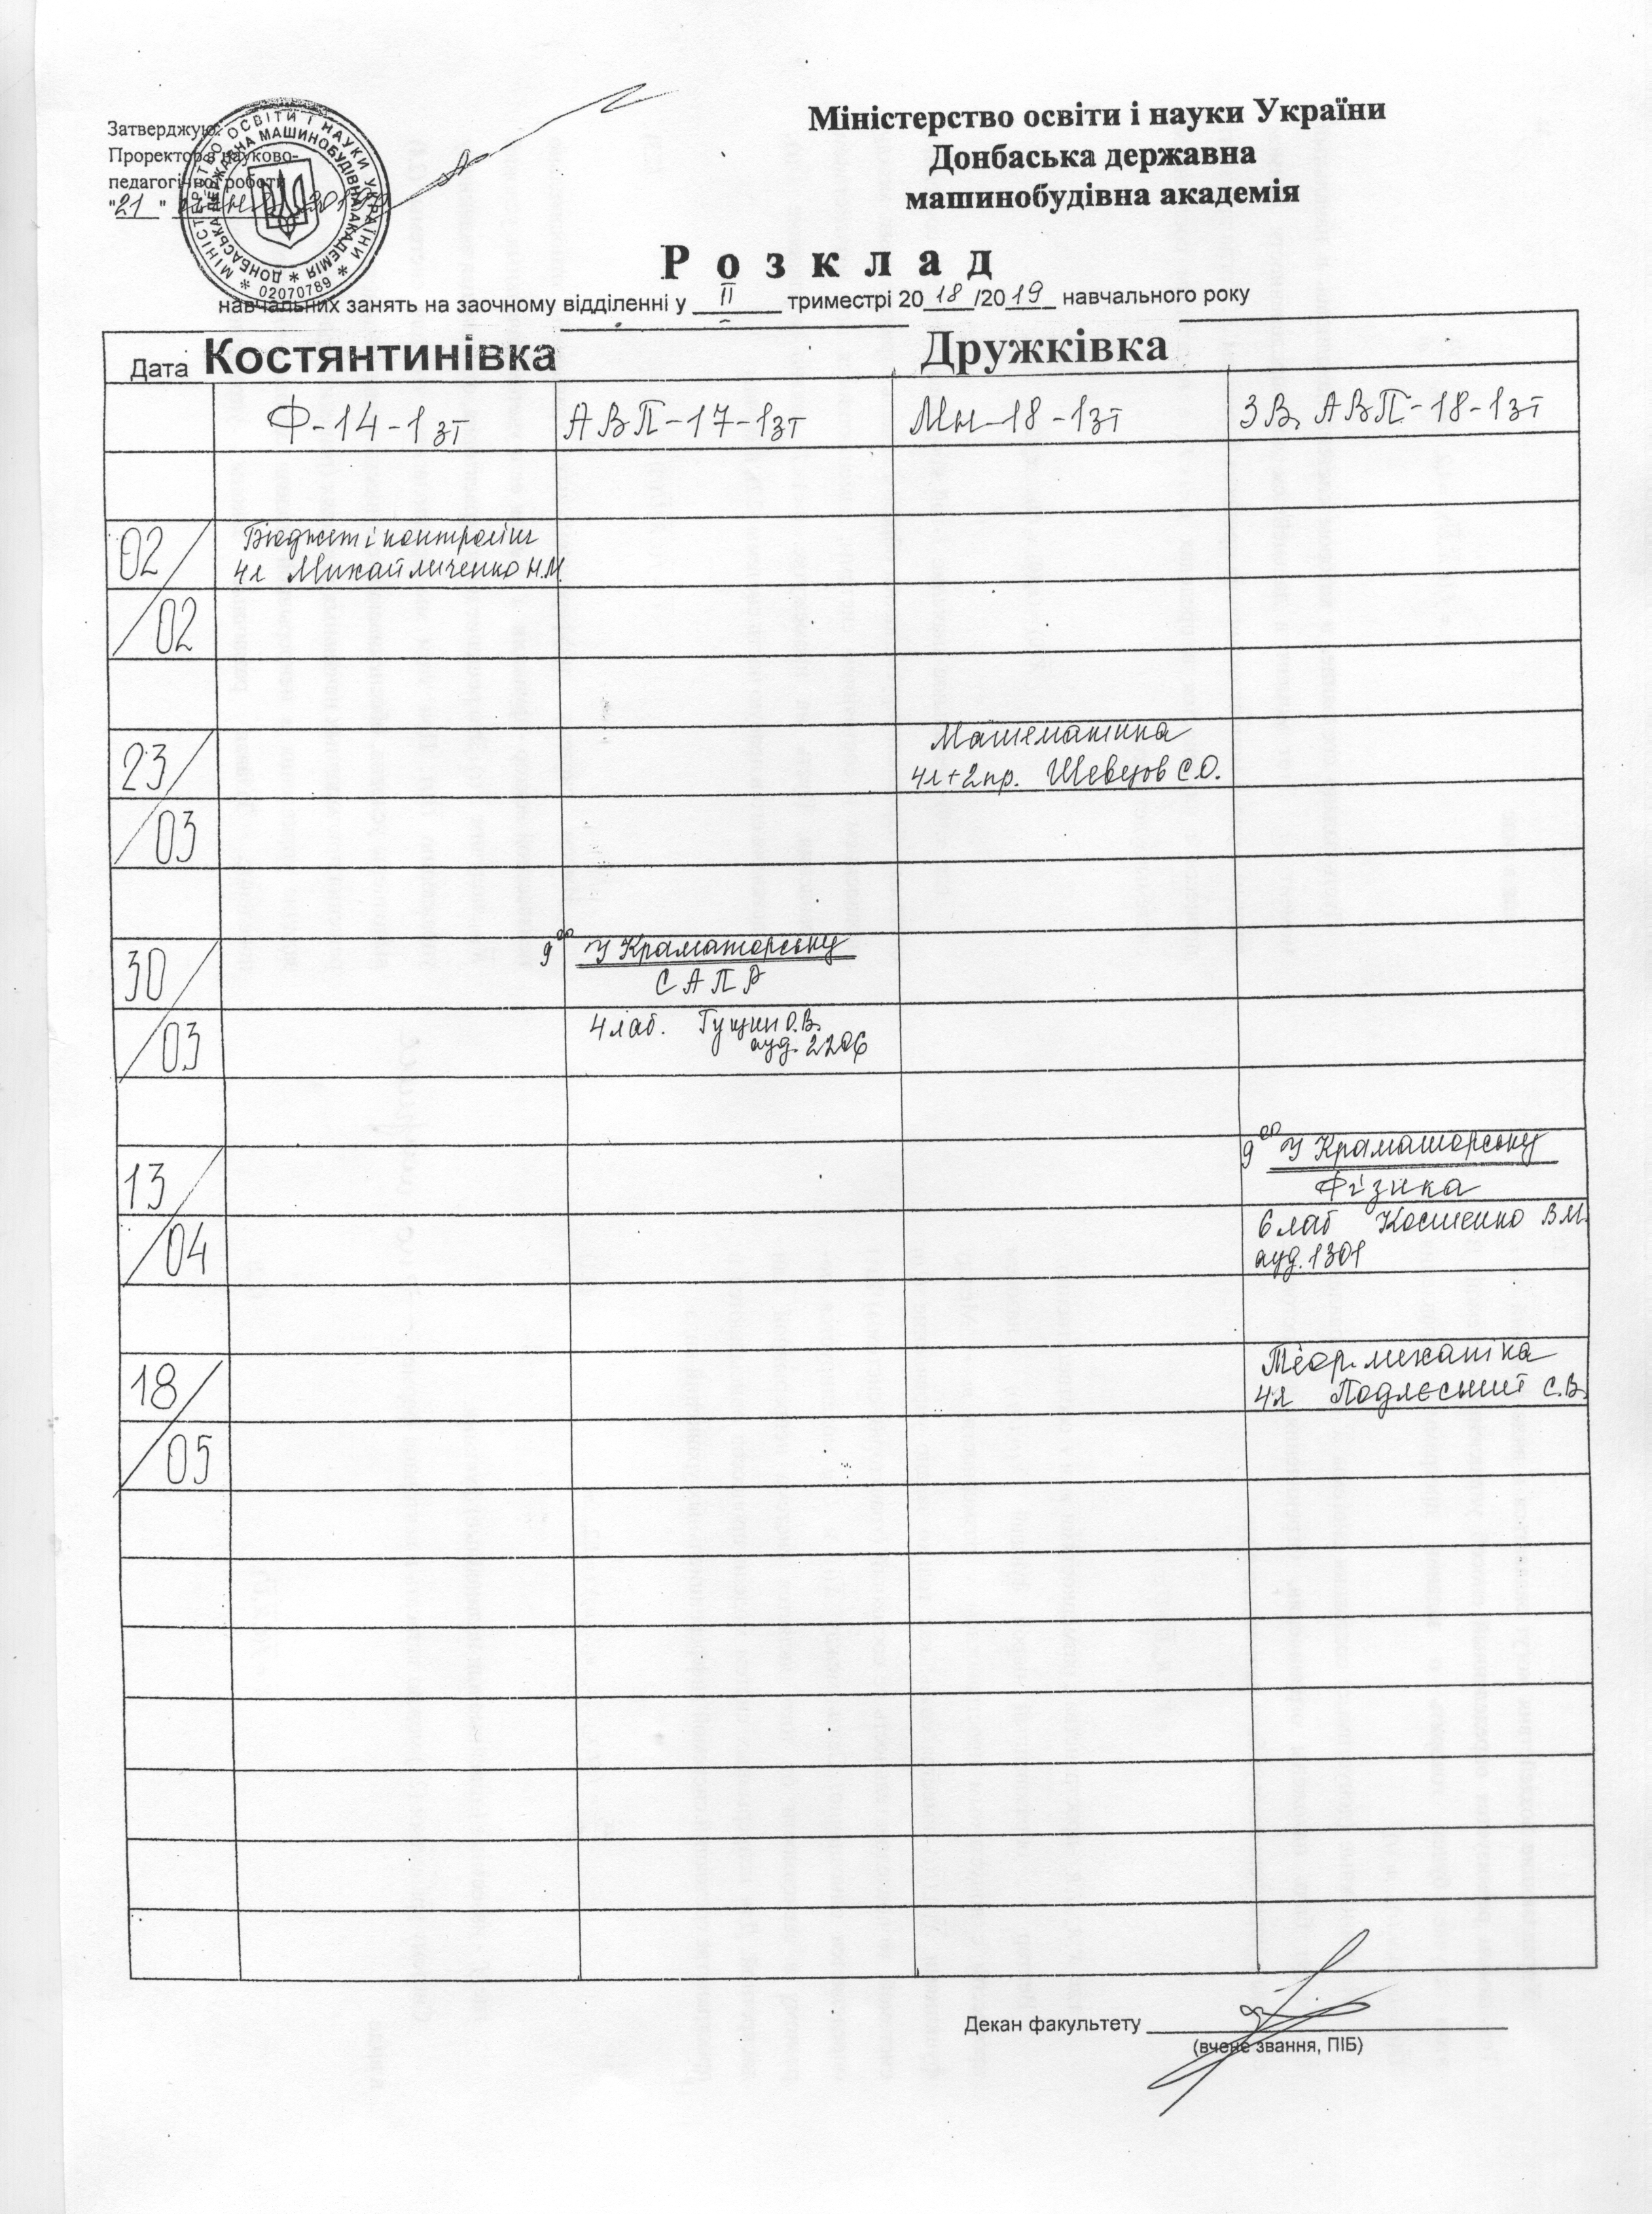 Міністерство освіти і науки України
Донбаська державна
машинобудівна академія
Затверджую:
Проректор з науково-
педагогічної роботи
"21"
МІНІСТЕРСТВО ОСВІТИ І НАУКИ УКРАЇНИ
ДОНБАСЬКА ДЕРЖАВНА МАШИНОБУДІВНА АКАДЕМІЯ
02070789
Розклад
навчальних занять на заочному відділенні у II триместрі 2018/2019 навчального року
Дата Костянтинівка Дружківка
Ф-14-1зт АВП-17-1зт Мн-18-1зт ЗВ, АВП-18-1зт
02/02
Бюджет і контролінг
4л Михайличенко Н.М.
23/03
Математика
4л+2пр. Шевцов С.О.
30/03
9⁰⁰ У Краматорську
САПР
4лаб. Гущин О.В.
ауд. 2206
13/04
9⁰⁰ У Краматорську
Фізика
6лаб Костенко В.М.
ауд. 1301
18/05
Теор. механіка
4л Подлєсний С.В.
Декан факультету
(вчене звання, ПІБ)